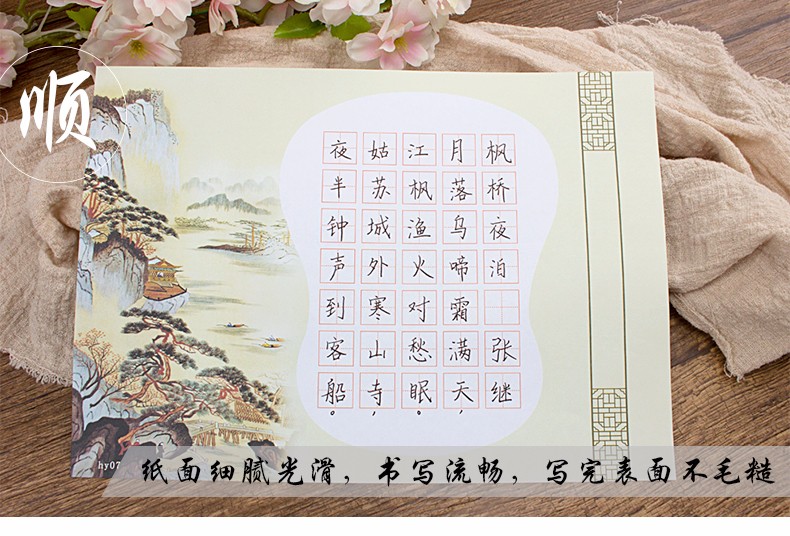 顺
枫桥夜泊 张继
月落乌啼霜满天,
江枫渔火对愁眠。
姑苏城外寒山寺,
夜半钟声到客船。
hy07
纸面细腻光滑，书写流畅，写完表面不毛糙